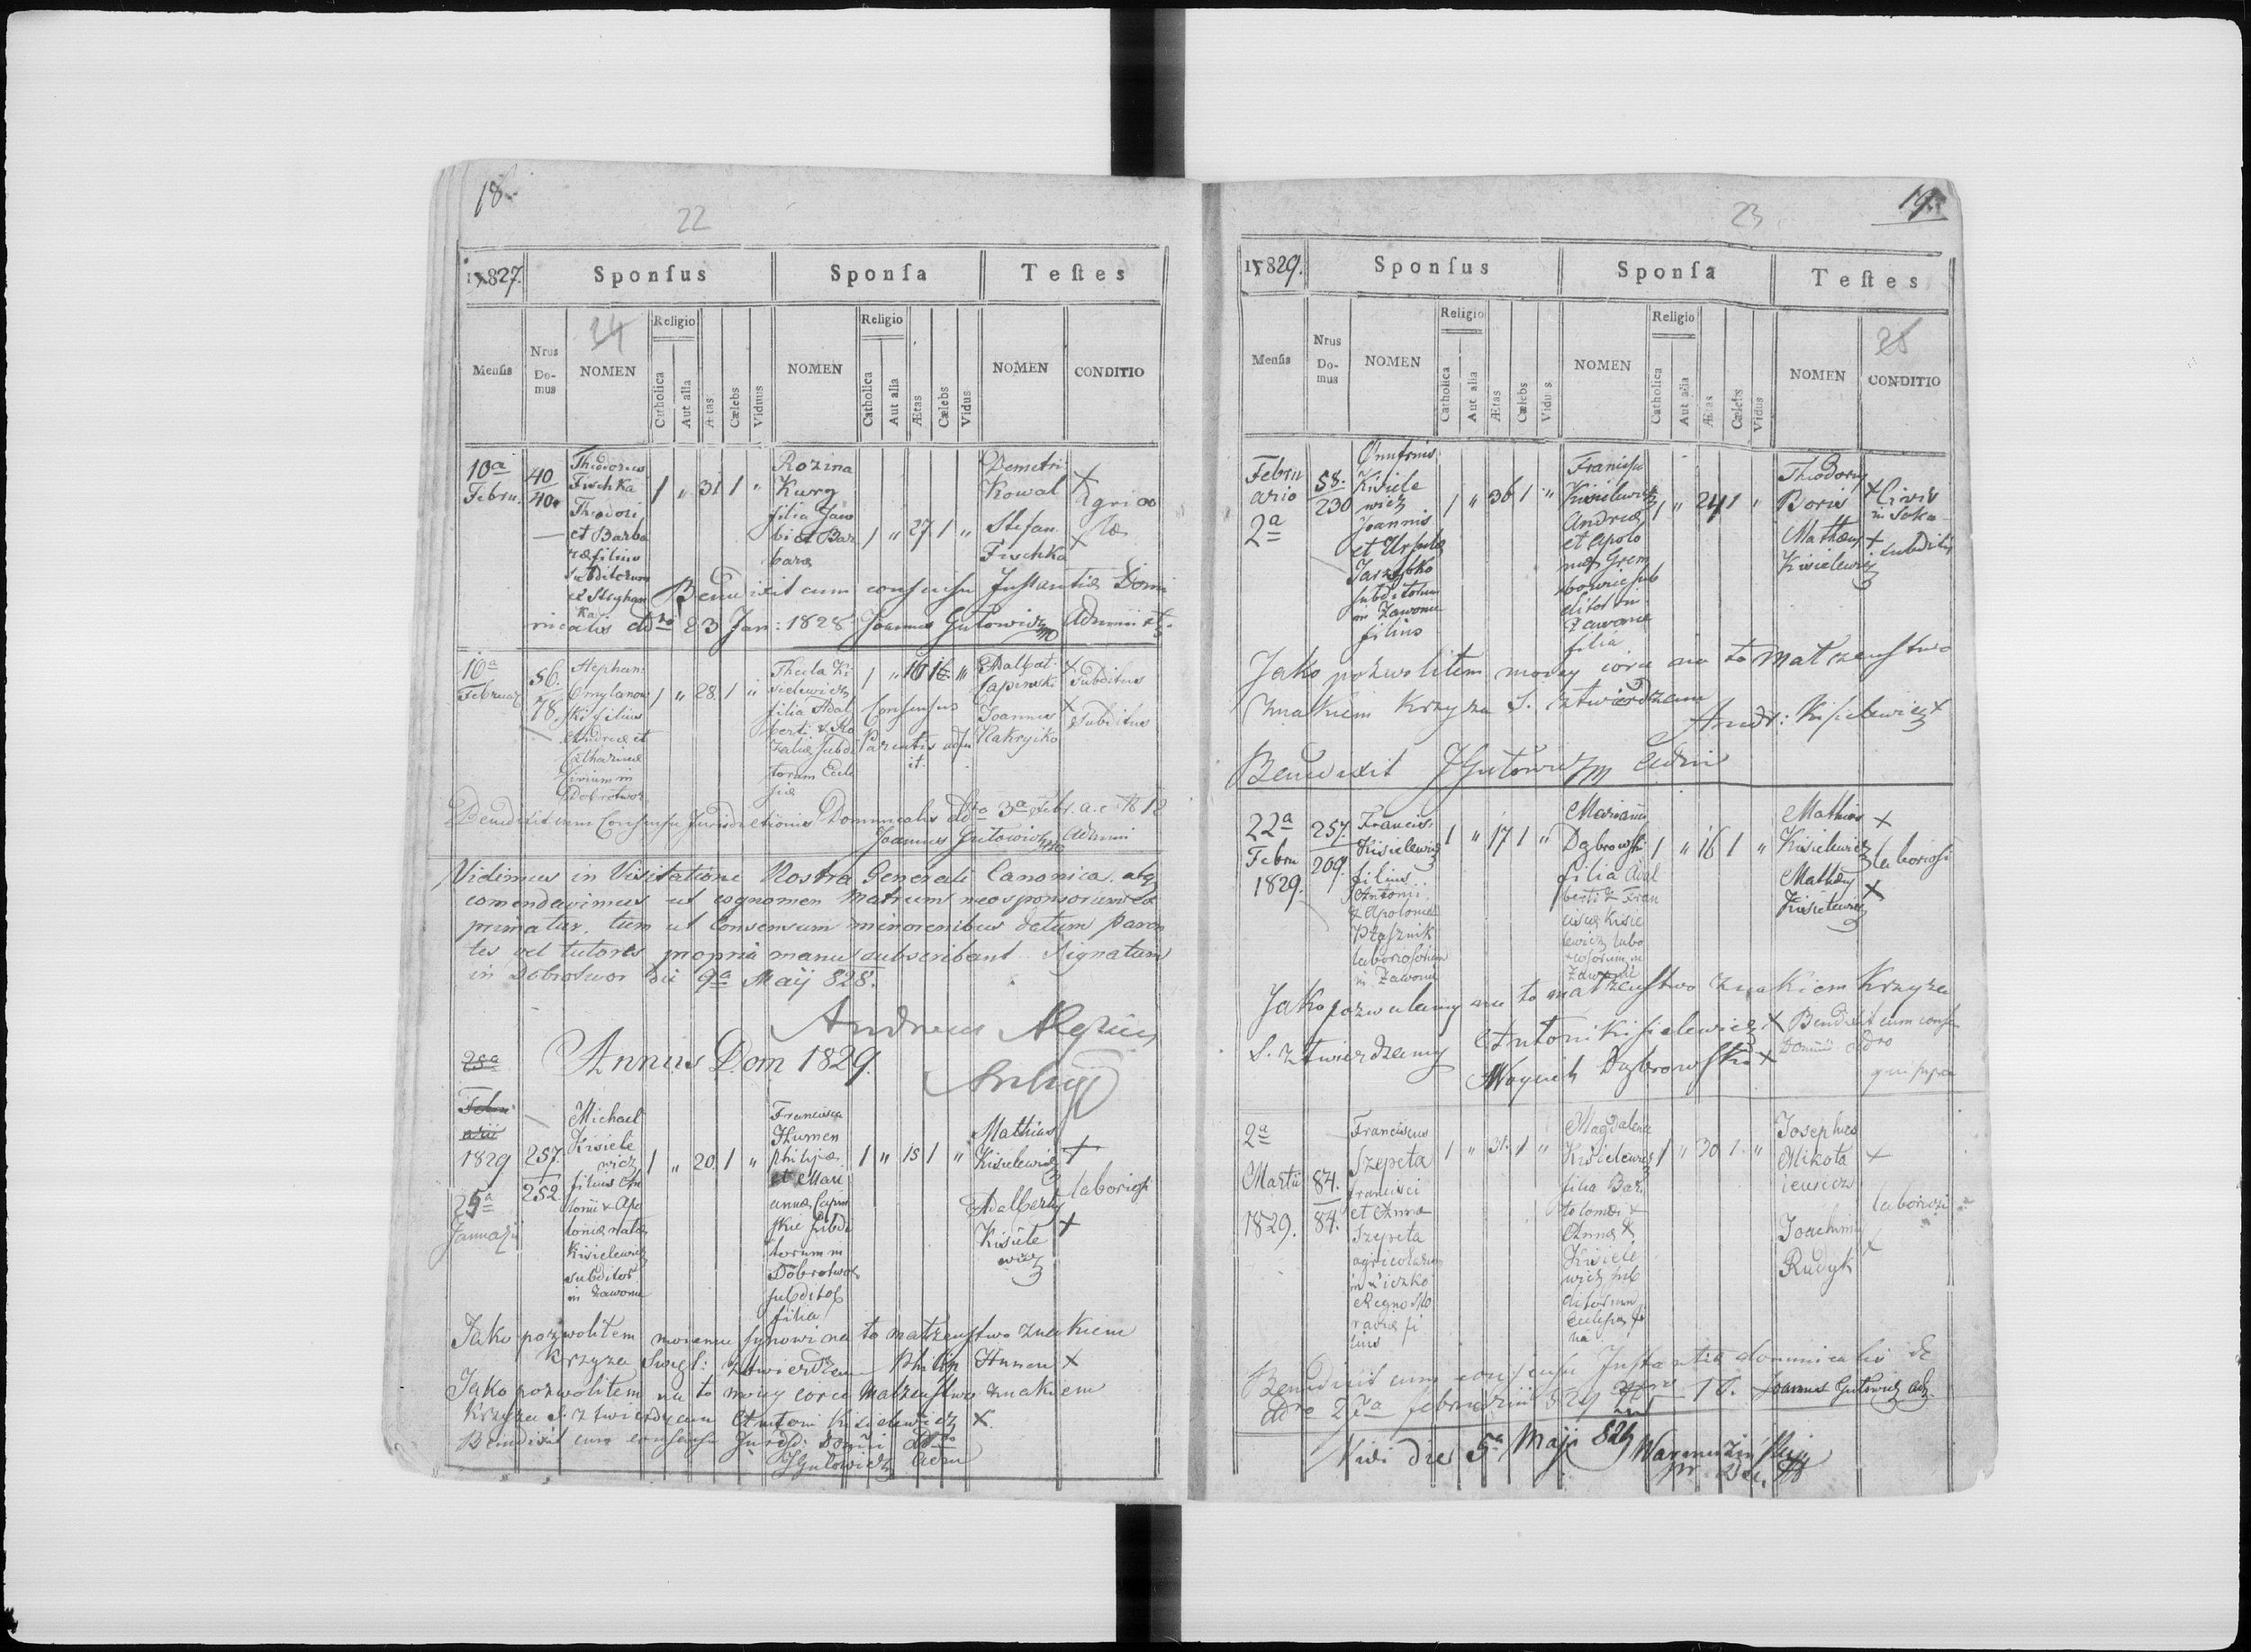 18.
22
17827. Sponsus Sponsa Testes
Mensis Nrus Domus NOMEN Religio Catholica Aut alia Ætas Cælebs Viduus NOMEN Religio Catholica Aut alia Ætas Cælebs Vidus NOMEN CONDITIO
24
10a Febru.
40
40.
Theodorus
Fischka
Theodori
et Barba
ræ filius
subditorum
1 " 31 1 "
Rozina
Kurg
filia Jaco
bi et Bar
baræ
1 " 27 1 "
Demetri
Kowal +
Stefan
Fischka +
Agrico
læ
Benedixit cum consensu Instantiæ Domi
nicalis ddto 23 Jan: 1828 Joannes Gutowicz
10a
Februar
56.
78.
Stephan:
filius
Andreæ et
Catharinæ
Civium in
Dobrotwor
1 " 28 1 "
Thecla Ki
sielewicz
filia Adal
berti & Ro
zaliæ subdi
torum Eccle
siæ
1 " 16
Consensus
Parentis adfu
it.
Adalbert
Capinski +
Joannes +
Subditus
Subditus
Benedixit cum Consensu Jurisdictionis Dominicalis ddto 3a Febr. a. c. N 12
Joannes Gutowicz Admini
Vidimus in Visitatione Nostra Generali Canonica. atq
comendavimus ut cognomen Matrum neosponsorum ex
primatur. tum ut Consensum minorenibus datum paren
tes vel tutores propria manu subscribant. Signatum
in Dobrotwor die 9a Maij 828.
Andreas
Annus Dom 1829.
25a
Febru
arii
1829
25a
Januarij
257.
252
Michael
Kisiele
wicz
filius An
tonii & Apo
loniæ natæ
Kisielewicz
subditor
in Zawonie
1 " 20 1 "
Francisca
Humen
Philipi
et Mari
annæ Capin
skie subdi
torum in
Dobrotwor
subditor
filia
1 " 18 1 "
Mathias
Kisielewicz +
Adalbertus
Kisiele
wicz +
laboriosi
Jako pozwolitem moiemu synowi na to matzenstwo znakiem
Krzyza Swgt: ztwierdzam Philip Humen +
Jako pozwolitem na to moiey corce Matzenstwo znakiem
Krzyza S. ztwierdzam Antoni Kisielewicz +
Benedixit cum consensu Jurisd: Domini ddto
JGutowicz Adm
19.
23
17829. Sponsus Sponsa Testes
Mensis Nrus Domus NOMEN Religio Catholica Aut alia Ætas Cælebs Vidus NOMEN Religio Catholica Aut alia Ætas Cælebs Vidus NOMEN CONDITIO
25
Febru
ario
2a
58.
230
Onufrius
Kisiele
wicz
Joannis
et Ursulæ
Jarzębko
subditorum
in Zawonie
filius
1 " 36 1 "
Francisca
Kisielewicz
Andreæ
et Apolo
niæ Grem
bowicz sub
ditor in
Zawonie
filia
1 " 24 1 "
Theodorus
Boris +
Mathæus
Kisielewicz +
Civis
in Soka
subditus
Jako pozwolitem moiey corce na to matzenstwo
Znakiem Krzyza S. ztwierdzam
Andr: Kisielewicz +
Benedixit JGutowicz Adm
22a
Febru
1829.
257.
209.
Francis.
Kisielewicz
filius
Antonii
& Apoloniæ
Ptasznik
laboriosorum
in Zawonie
1 " 17 1 "
Marianna
Dąbrowska
filia Adal
berti & Fran
ciscæ Kisie
lewicz labo
riosorum in
Zawonie
1 " 16 1 "
Mathias +
Kisielewicz
Mathæus +
Kisielewicz
laboriosi
Jako pozwalamy na to matzenstwo znakiem Krzyza
S. ztwierdzamy Antoni Kisielewicz + Benedixit cum consen
Woyciech Dąbrowski + Domini ddto
qui supra
2a
Martii
1829.
84.
84.
Franciscus
Szepeta
Francisci
et Anna
Szepeta
agricolarum
in
filius
1 " 31. 1 "
Magdalena
Kisielewicz
filia Bar
tolomei &
Annæ
Kisiele
wicz sub
ditorum
Ecclesiæ fi
lia
1 " 30 1. "
Josephus
Mikota +
iewicz
Joachim
Rudyk +
laboriosi
Benedixit cum consensu Instantiæ dominicalis de
ddto 27a februarii 829 Joannes Gutowicz adm
Vidi die 5a Maji 829